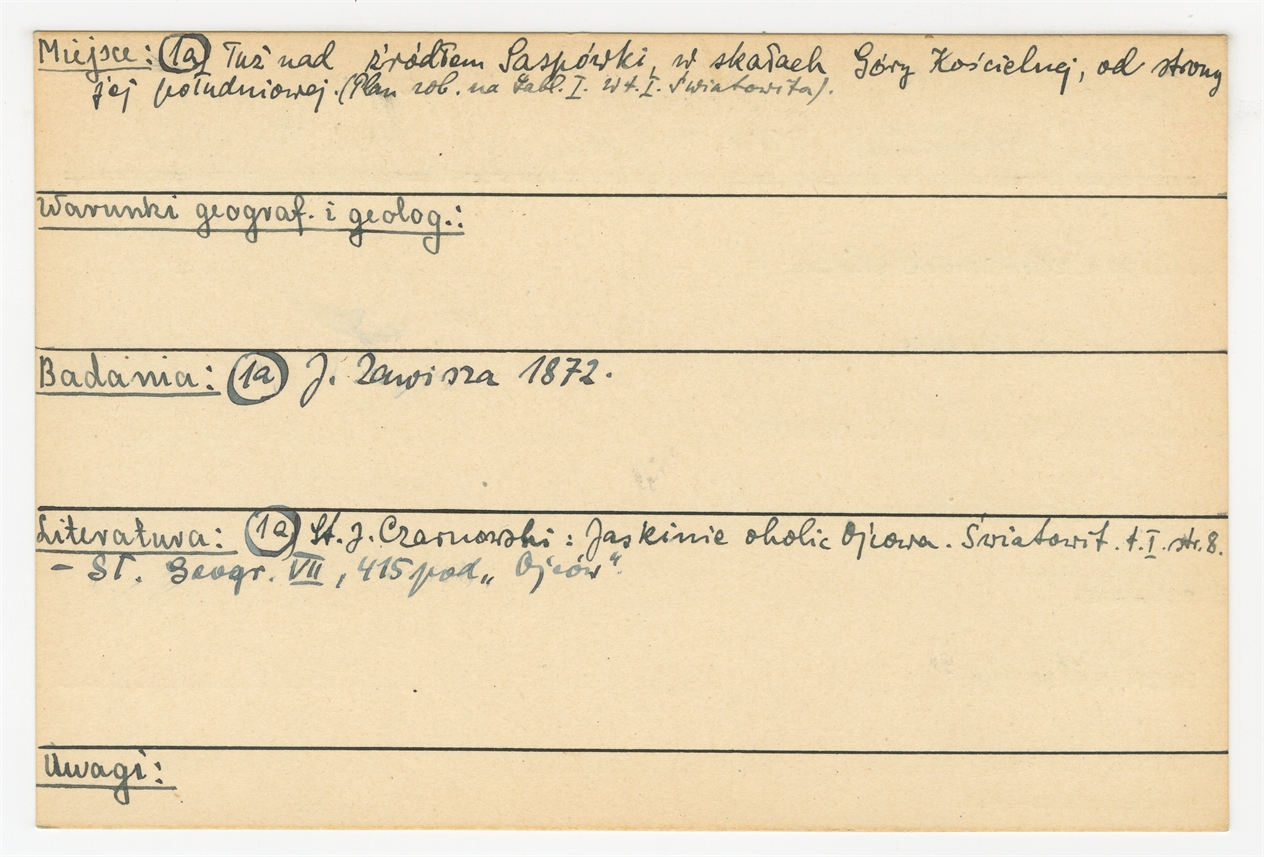 Miejsce: 1a Tuż nad źródłem Saspówki, w skałach Góry Kościelnej, od strony
jej południowej. (Plan rob. na tabl. I. w t. I. Światowita).
Warunki geograf. i geolog.:
Badania: 1a J. Zawisza 1872.
Literatura: 1a St. J. Czarnowski: Jaskinie okolic Ojcowa. Światowit. t. I. str. 8.
- Sł. Geogr. VII, 415 pod „Ojców".
Uwagi: